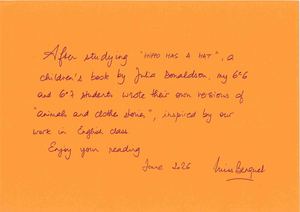 After studying "HIPPO HAS A HAT", a
children's book by Julia Donaldson, my 6°6
and 6°7 students wrote their own versions of
"animals and clothes stories", inspired by our
work in English class.
Enjoy your reading
June 2026